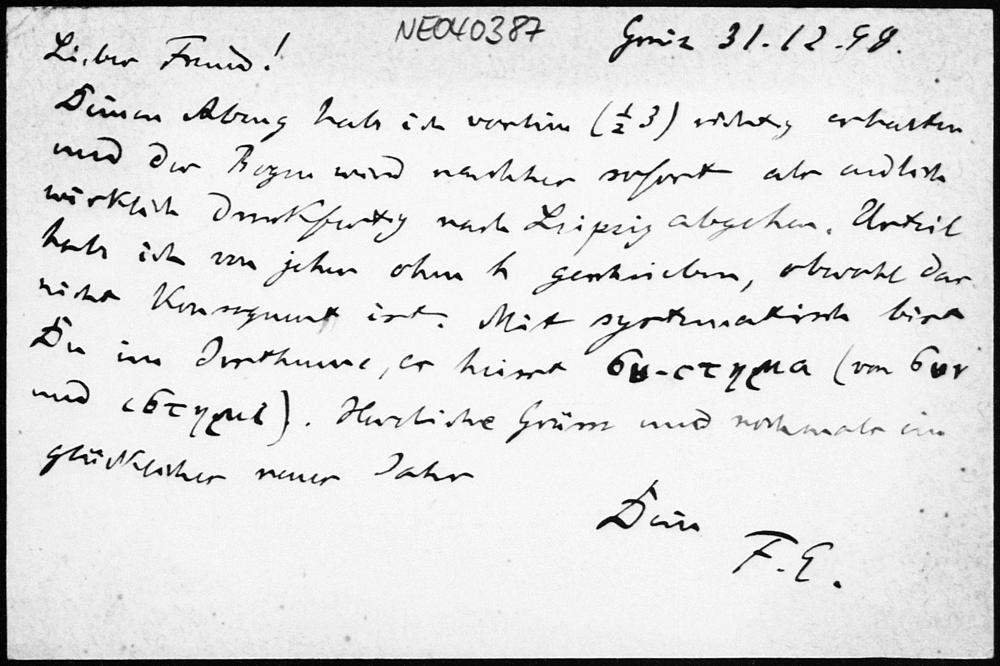 NE040387
Greiz 31.12.98.
Lieber Freund!
Deinen Abzug habe ich vorhin (½3) richtig erhalten
und der Bogen wird nachher sofort als endlich
wirklich druckfertig nach Leipzig abgehen. Urteil
habe ich von jeher ohne h geschrieben, obwohl das
nicht Konsequent ist. Mit systematisch bist
Du im Irrthume, es heisst συ-στημα (von συν
und ιστημι). Herzliche Grüsse und nochmals ein
glückliches neues Jahr
Dein
F.E.